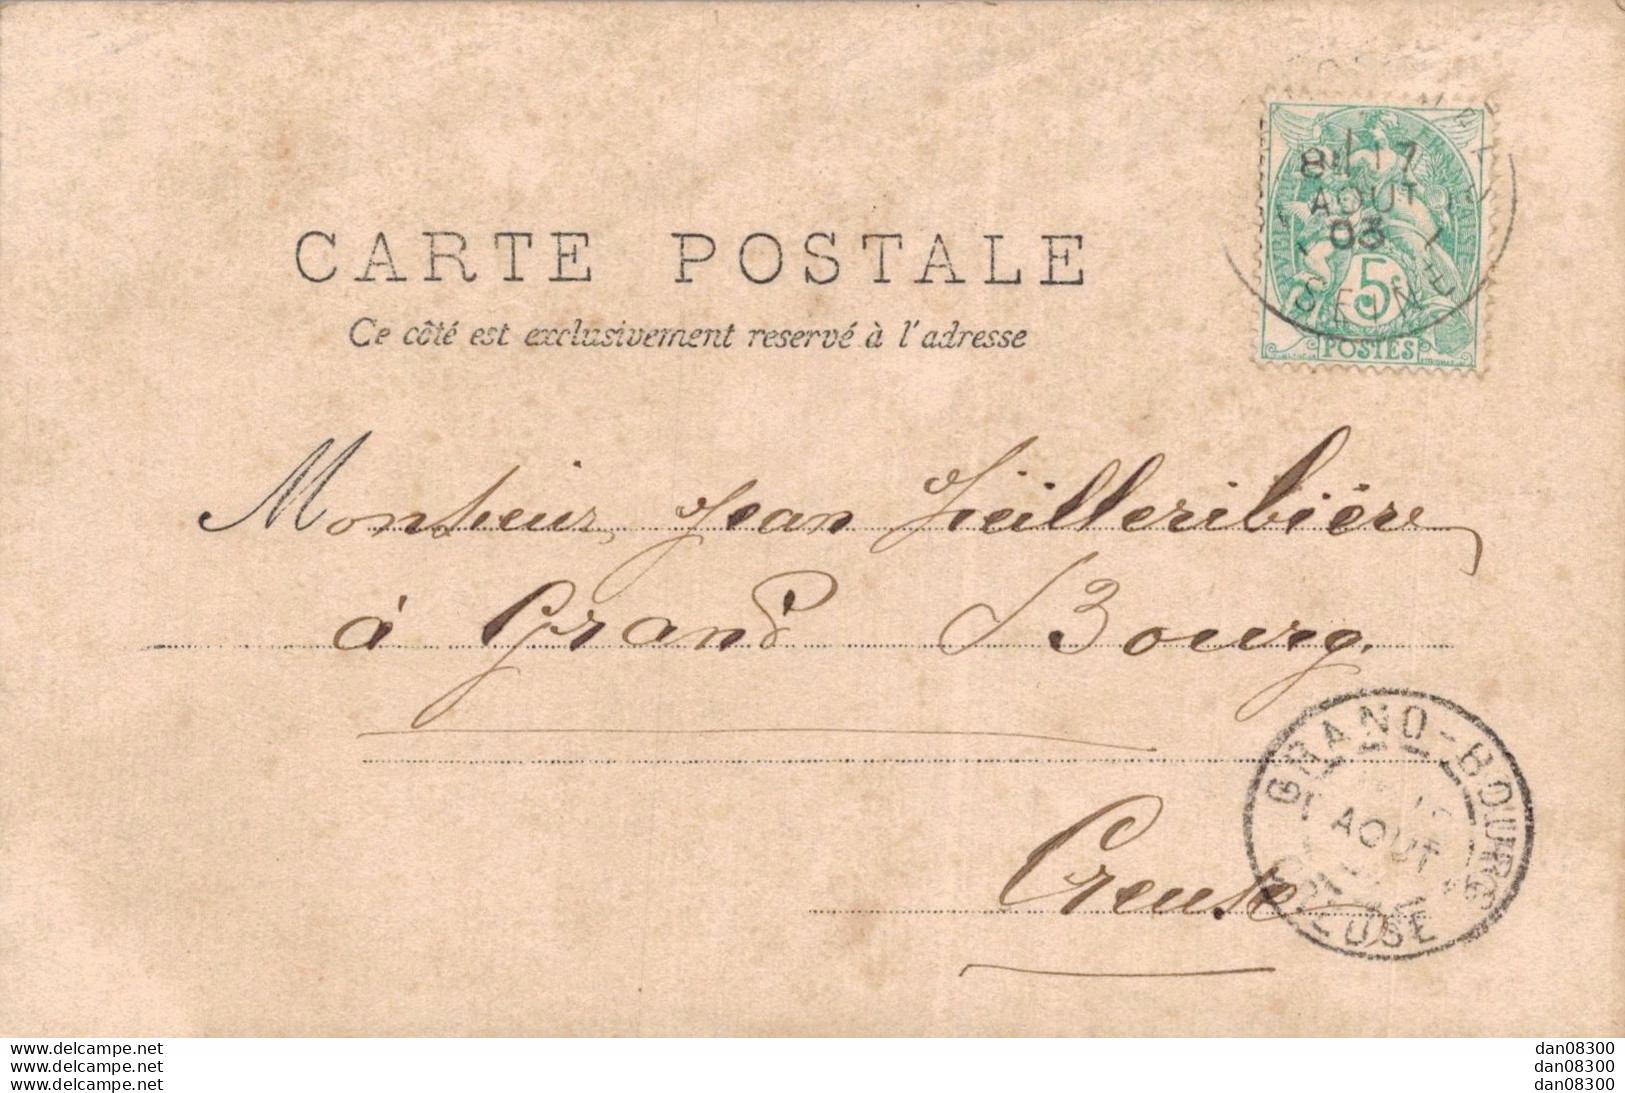 CARTE POSTALE
Ce côté est exclusivement reservé à l'adresse
17
AOUT
03
SEINE
5c
POSTES
Monsieur Jean
à Grand Bourg.
Creuse
GRAND-BOURG
AOUT
CREUSE
www.delcampe.net
www.delcampe.net
www.delcampe.net
dan08300
dan08300
dan08300